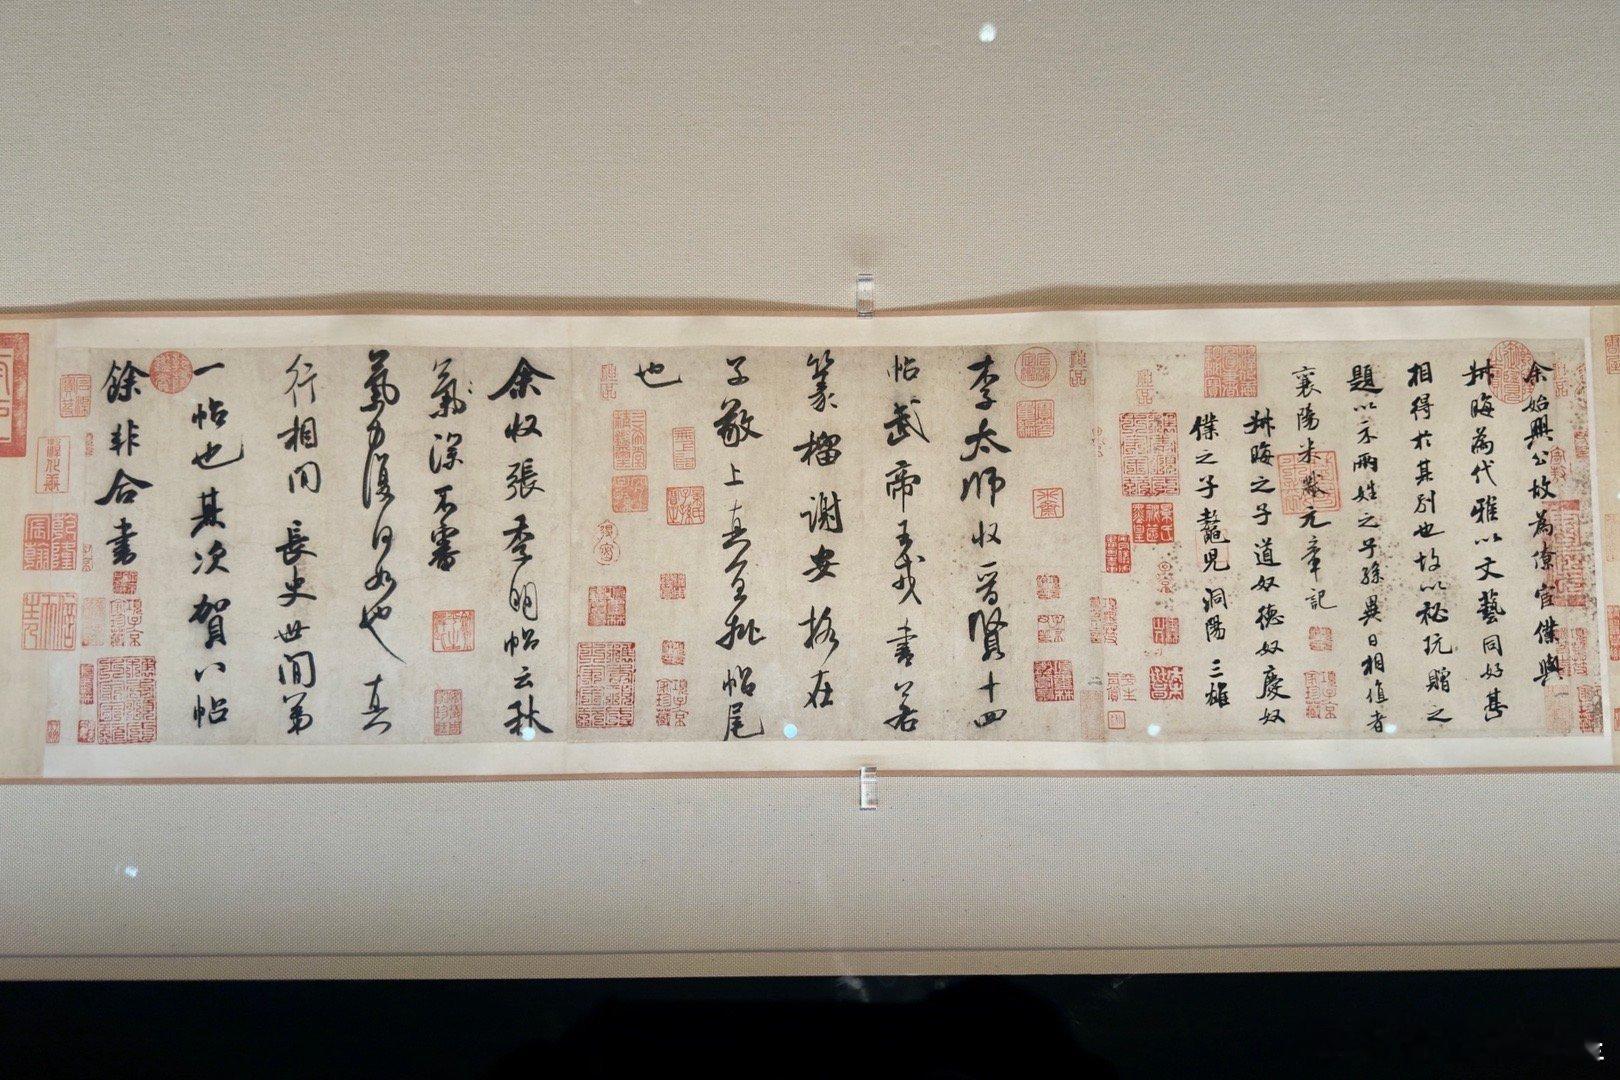 余始興公故為僚宦僕與
叔晦為代雅以文藝同好甚
相得於其別也故以秘玩贈之
題以示兩姓之子孫異日相值者
襄陽米黻元章記
叔晦之子道奴德奴慶奴
僕之子鼇兒洞陽三雄
李太師收晉賢十四
帖武帝王戎書若
篆籀謝安格在
子敬上真宜批帖尾
也
余收張季明帖云秋
氣深不審
氣力復何如也真
行相間長史世間第
一帖也其次賀八帖
餘非合書